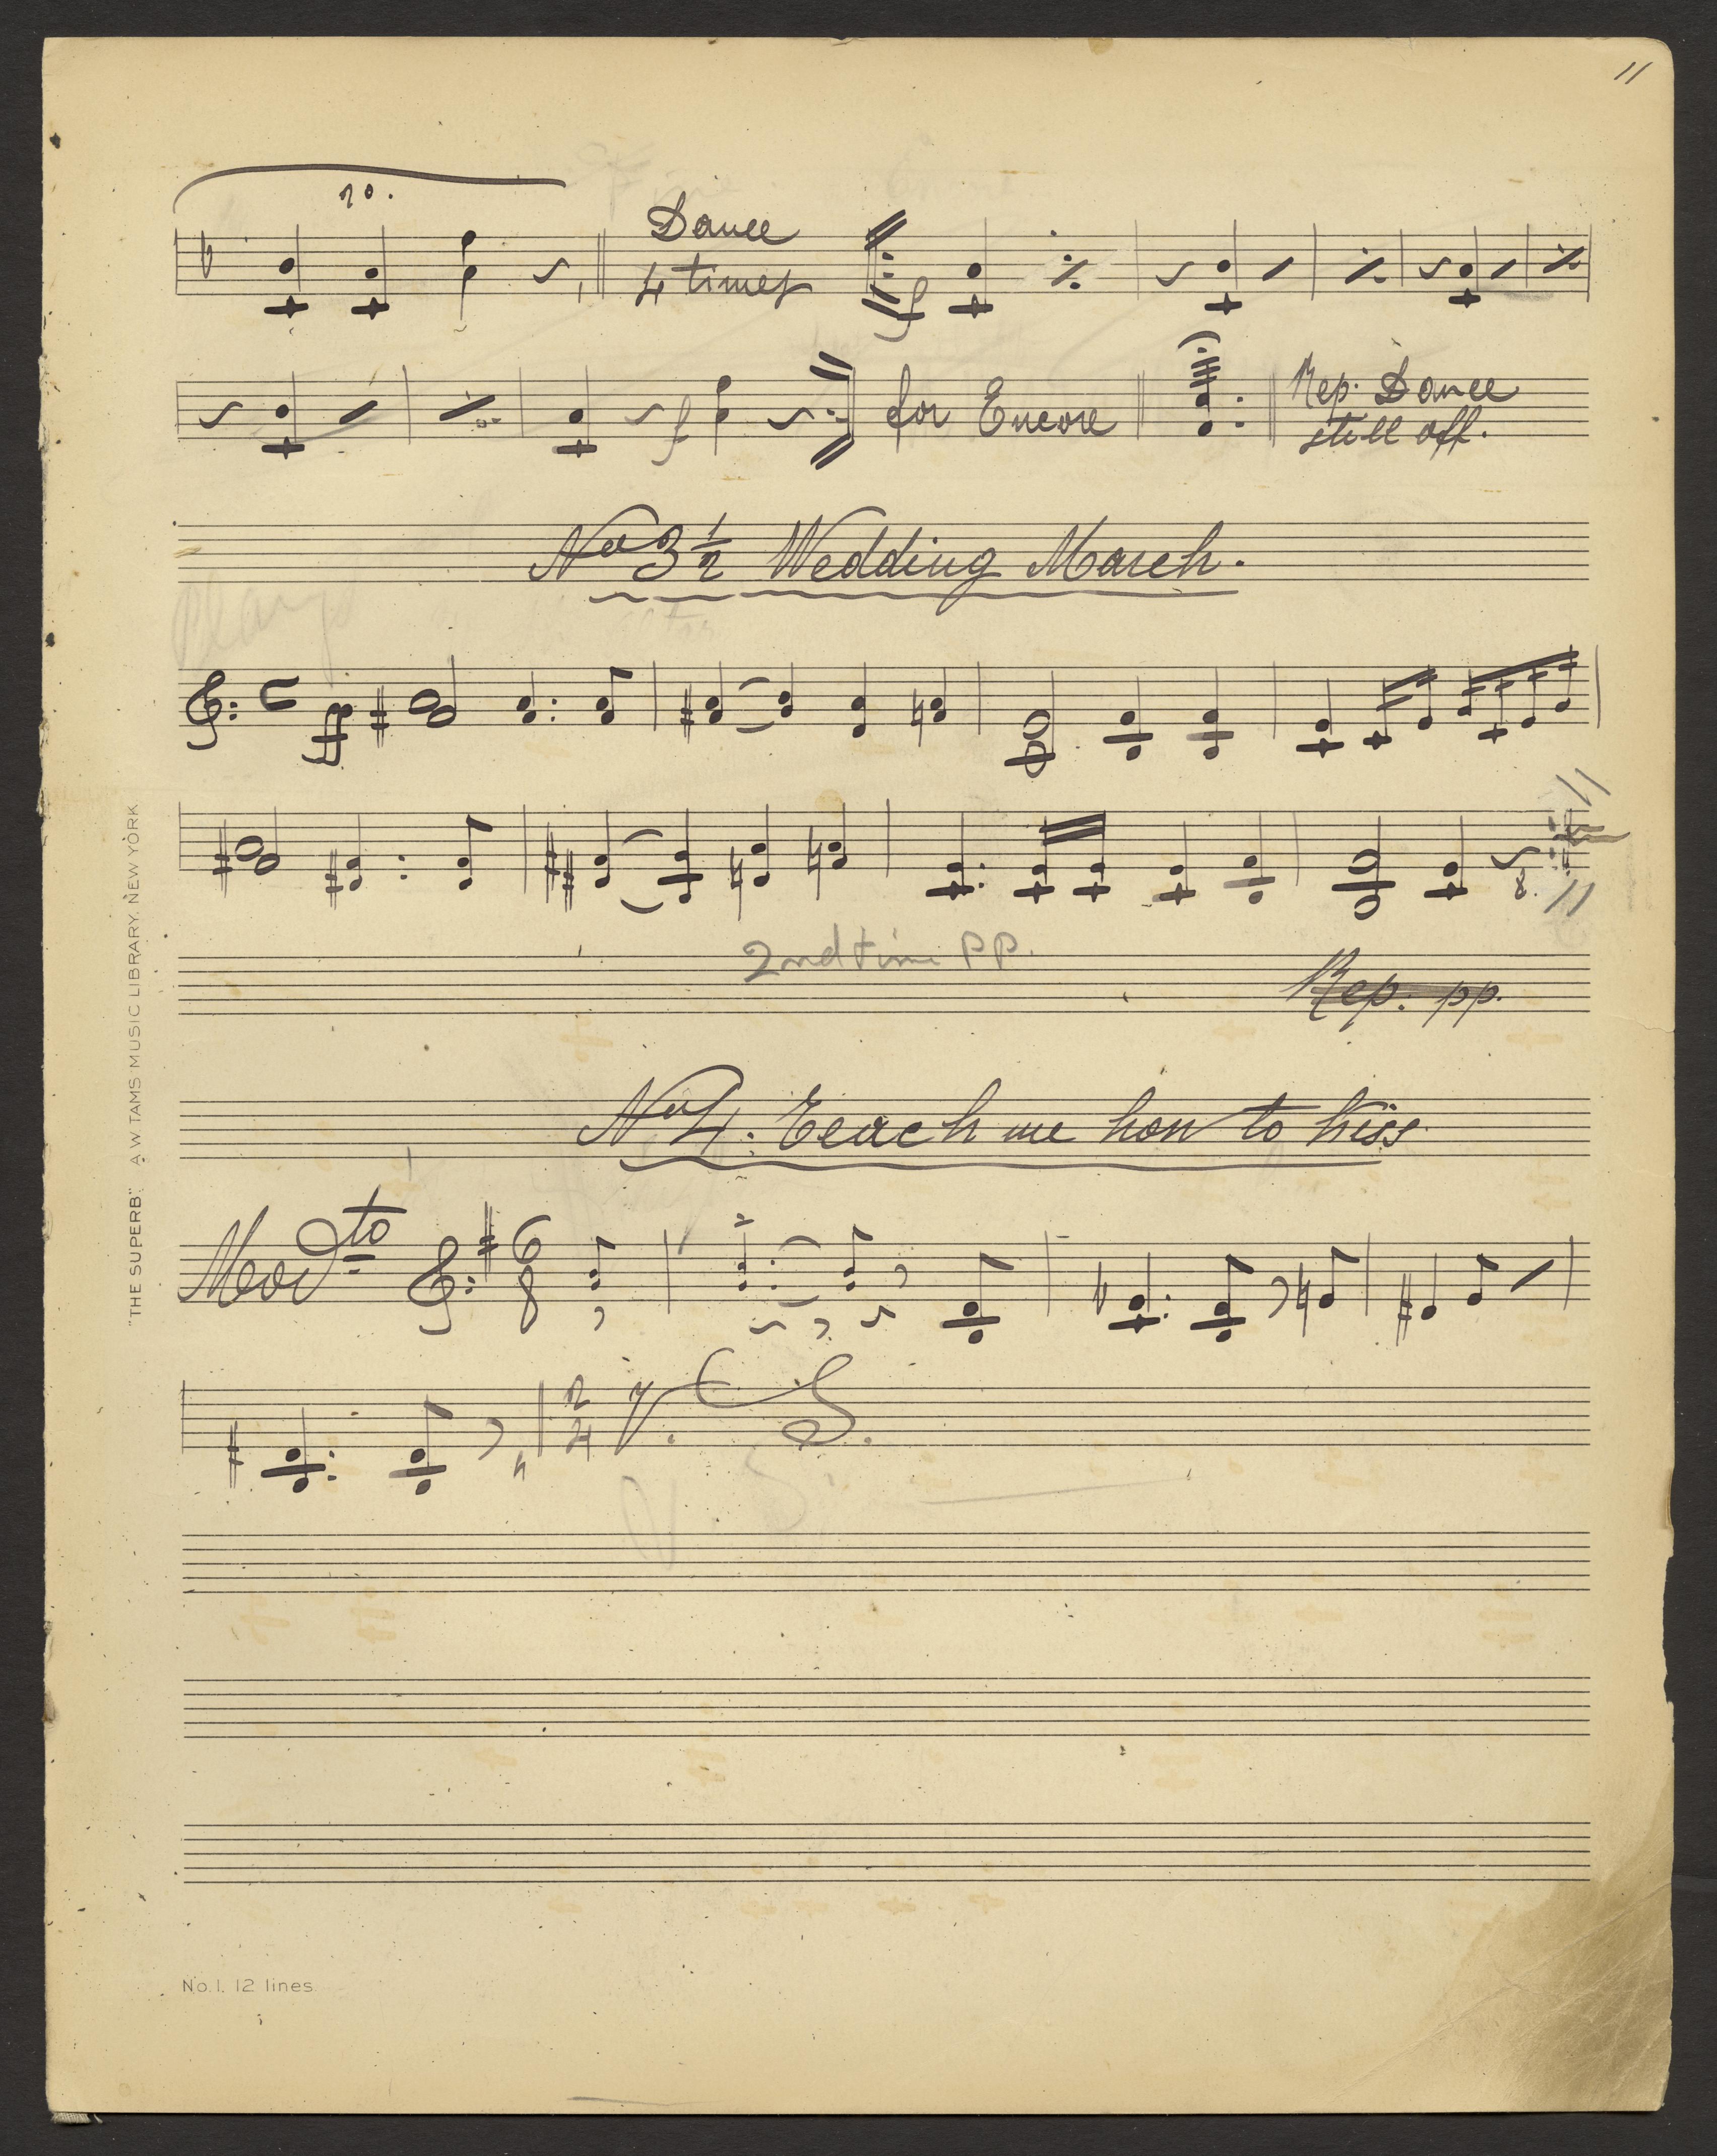 11
2o.
Dance
4 times
f
f
for Encore
Rep. Dance
still off.
No 3 1/2 Wedding March.
ff
2nd time pp.
Rep. pp.
No 4. Teach me how to kiss
Modto
6
8
2
4
V. S.
V. S.
"THE SUPERB". A.W. TAMS MUSIC LIBRARY, NEW YORK
No. 1. 12 lines